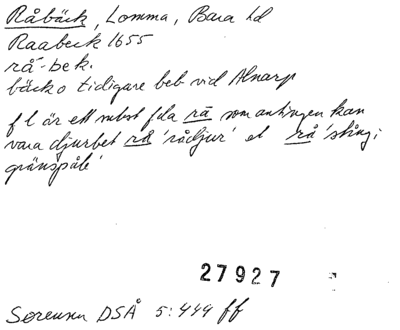 Råbäck, Lomma, Bara hd
Raabeck 1655
rå-bek.
bäck o tidigare beb vid Alnarp
f l är ett subst fda rå som antingen kan
vara djurbet rå 'rådjur' el rå 'stång;
gränspåle'
27927
Sørensen DSÅ 5:444 ff